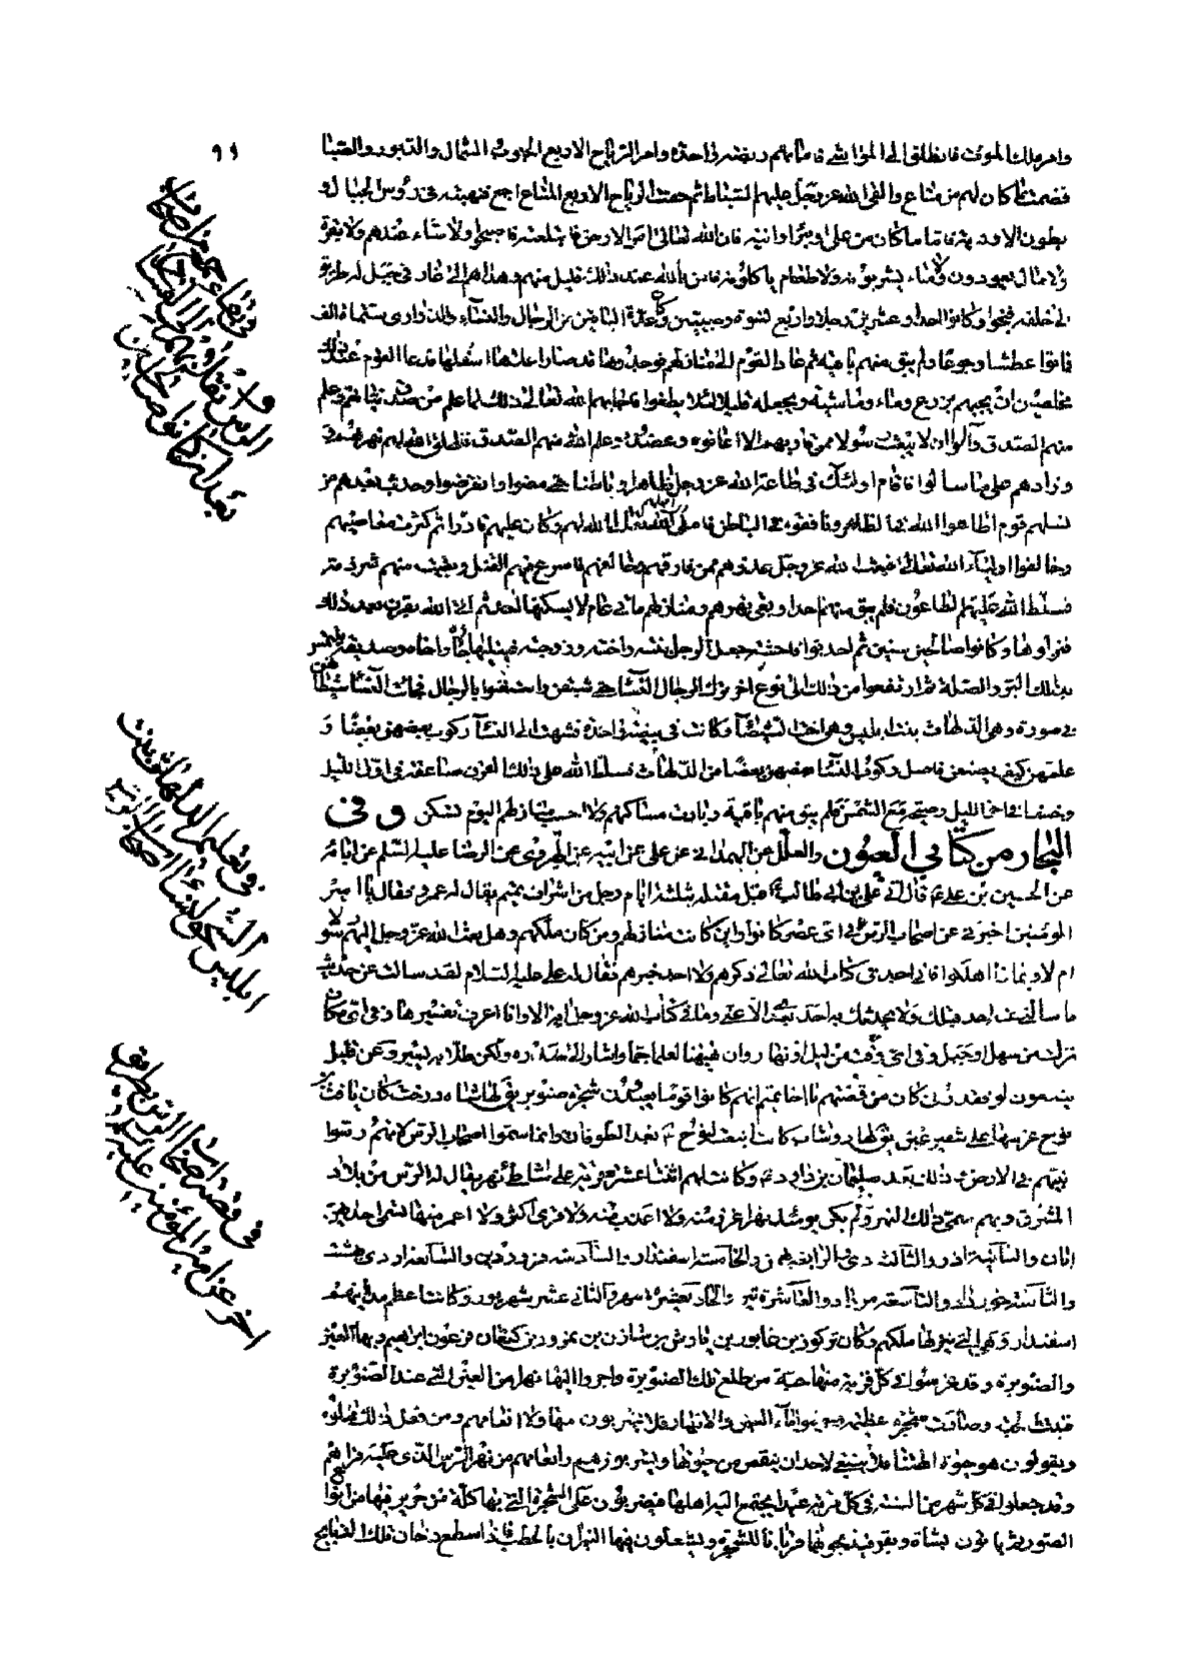 وامر ملك الموت فانطلق الى المواشى فاماتهم ربضة واحدة وامر الرياح الاربع الجنوب الشمال والدبور والصبا
فضمت ما كان لهم من متاع والقى الله عز وجل عليهم السبات ثم حفت الرياح الاربع المتاع اجمع فنهبته فى رؤس الجبال و
بطون الاودية فاما ما كان من على او تبر او انية فان الله تعالى امر الارض فابتلعته فاصبحوا ولا شاء عندهم ولا بقرة
ولا مال يعودون ولا ماء يشربونه ولا طعام ياكلونه فامن بالله عند ذلك قليل منهم وهداهم الى غار فى جبل له طريق
الى خلفه فنجوا وكانوا احدا وعشرين رجلا واربع نسوة وصبيين وكان عدة الباقين من الرجال والنساء والذرارى ستمائة الف
فماتوا عطشا وجوعا ولم يبق منهم باقية ثم عاد القوم الى منازلهم فوجدوها قد صار اعلاها اسفلها فدعا القوم عند ذلك
مخلصين ان يجيبهم بزرع وماء وماشية ويجعله قليلا لئلا يطغوا فاجابهم الله تعالى ذلك لما علم من صدق نياتهم وعلم
منهم الصدق وآلوا ان لا يبعث رسولا ممن قاربهم الا اعانوه وعضدوه وعلم الله منهم الصدق فاطلق الله لهم نهرهم
وزادهم على ما سالوا فاقام اولئك فى طاعة الله عز وجل ظاهرا وباطنا حتى مضوا وانقرضوا وحدث بعدهم من
نسلهم قوم اطاعوا الله فى الظاهر ونافقوه فى الباطن فاملى الله لهم وكان عليهم قادرا ثم كثرت معاصيهم
وخالفوا اولياء الله تعالى فبعث الله عز وجل عدوهم ممن فارقهم وخالفهم فاسرع فيهم القتل وبقيت منهم شرذمة
فسلط الله عليهم الطاعون فلم يبق منهم احدا وبقى نهرهم ومنازلهم مائتى عام لا يسكنها احد ثم اتى الله بقرن بعد ذلك
فنزلوها وكانوا صالحين سنين ثم احدثوا فاحشة جعل الرجل بنته واخته وزوجته فينيلها جاره واخاه وصديقه يلتمس
بذلك البر والصلة ثم ارتفعوا من ذلك الى نوع اخر ترك الرجال النساء حتى شبقن واستغنوا بالرجال فجاءت النساء شيطانهن
فى صورة وهى الدلهاث بنت ابليس وهى اخت الشيصا وكانت فى بيضة واحدة فشهت الى النساء ركوب بعضهن بعضا و
علمتهن كيف يصنعن فاصل ركوب النساء بعضهن بعضا من الدلهاث فسلط الله على ذلك القرن صاعقة فى اول الليل
وخسفا فى اخر الليل وصيحة مع الشمس فلم يبق منهم باقية وبادت مساكنهم ولا احسب منازلهم اليوم تسكن وفى
البحار من كتابى العيون والعلل عن الهمدانى عن على عن ابيه عن الهروى عن الرضا عليه السلم عن ابائه
عن الحسين بن على ع قال اتى على بن ابى طالب ع قبل مقتله بثلثة ايام رجل من اشراف تميم يقال له عمرو فقال يا امير
المؤمنين اخبرنى عن اصحاب الرس فى اى عصر كانوا واين كانت منازلهم ومن كان ملكهم وهل بعث الله عز وجل اليهم رسولا
ام لا وبماذا اهلكوا فانى اجد فى كتاب الله تعالى ذكرهم ولا اجد خبرهم فقال له على عليه السلام لقد سالت عن حديث
ما سالنى عنه احد قبلك ولا يحدثك به احد بعدى الا عنى وما فى كتاب الله عز وجل اية الا وانا اعرف تفسيرها وفى اى مكان
نزلت من سهل او جبل وفى اى وقت من ليل او نهار وان هيهنا لعلما جما واشار الى صدره ولكن طلابه يسير وعن قليل
يندمون لو فقدونى كان من قصتهم يا اخا تميم انهم كانوا قوما يعبدون شجرة صنوبر يقال لها شاه درخت كان يافث
بن نوح غرسها على شفير عين يقال لها روشاب كانت انبعت لنوح ع بعد الطوفان وانما سموا اصحاب الرس لانهم رسوا
نبيهم فى الارض وذلك بعد سليمان بن داود ع وكانت لهم اثنتا عشر قرية على شاطئ نهر يقال له الرس من بلاد
المشرق وبهم سمى ذلك النهر ولم يكن يومئذ نهر اغزر منه ولا اعذب منه ولا قرى اكثر ولا اعمر منها تسمى احديهن
ابان والثانية اذر والثالثة دى والرابعة بهمن والخامسة اسفندار والسادسة فروردين والسابعة اردى بهشت
والثامنة خرداد والتاسعة مرداد والعاشرة تير والحادى عشرة مهر والثانى عشر شهريور وكانت اعظم مداينهم
اسفندار وهى التى ينزلها ملكهم وكان تركوز بن غابور بن يارش بن سازن بن نمرود بن كنعان فرعون ابراهيم وبها العين
والصنوبرة وقد غرسوا فى كل قرية منها حبة من طلع تلك الصنوبرة واجروا اليها نهرا من العين التى عند الصنوبرة
فنبتت الحبة وصارت شجرة عظيمة وحرموا ماء العين والانهار فلا يشربون منها ولا انعامهم ومن فعل ذلك قتلوه
ويقولون هو حيوة الهتنا فلا ينبغى لاحد ان ينقص من حيوتها ويشربون هم وانعامهم من نهر الرس الذى عليه قراهم
وقد جعلوا فى كل شهر من السنة فى كل قرية عيدا يجتمع اليه اهلها فيضربون على الشجرة التى بها كلة من حرير فيها من انواع
الصور ثم ياتون بشاة وبقر فيذبحونها قربانا للشجرة ويشعلون فيها النيران بالحطب فاذا سطع دخان تلك الذبايح
فى تعليم الدلهاث بنت
ابليس
فى قصة اصحاب الرس بطريق
اخر عن امير المؤمنين عليه